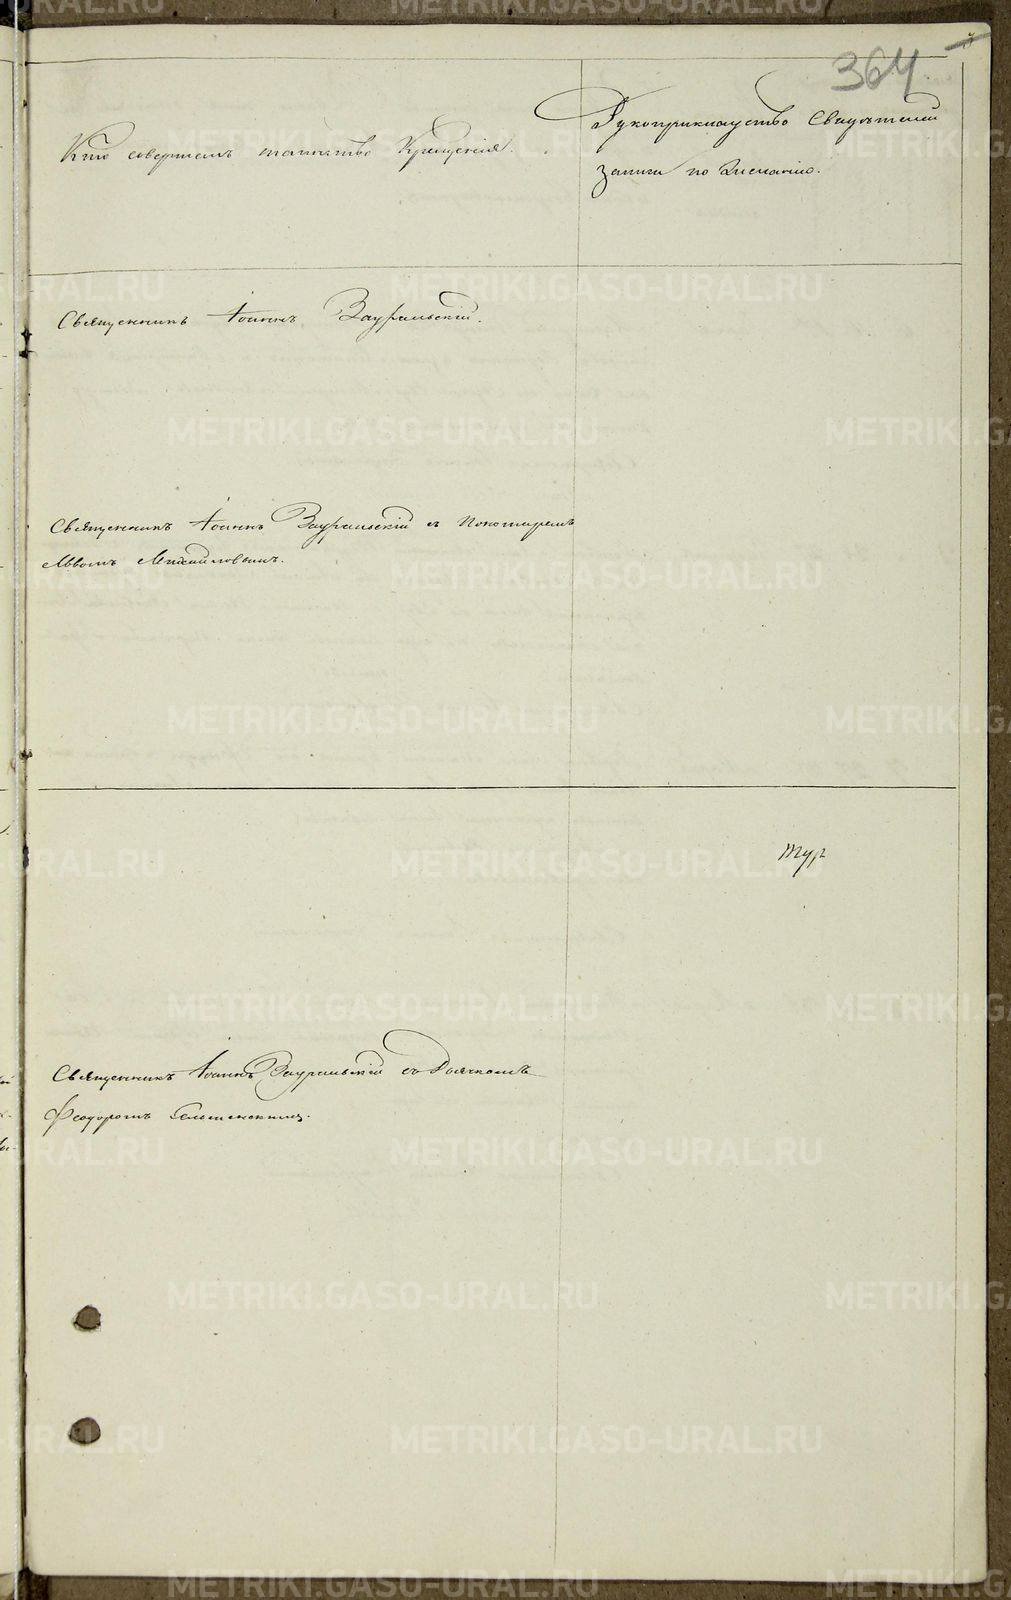 364
Кто совершалъ таинство Крещенія.
Рукоприкладство Свидѣтелей
записи по желанію.
Священникъ Іоаннъ Зауральскій.
Священникъ Іоаннъ Зауральскій съ Пономаремъ
Львомъ Михайловымъ.
Священникъ Іоаннъ Зауральскій со Дьячкомъ
Феодоромъ
METRIKI.GASO-URAL.RU